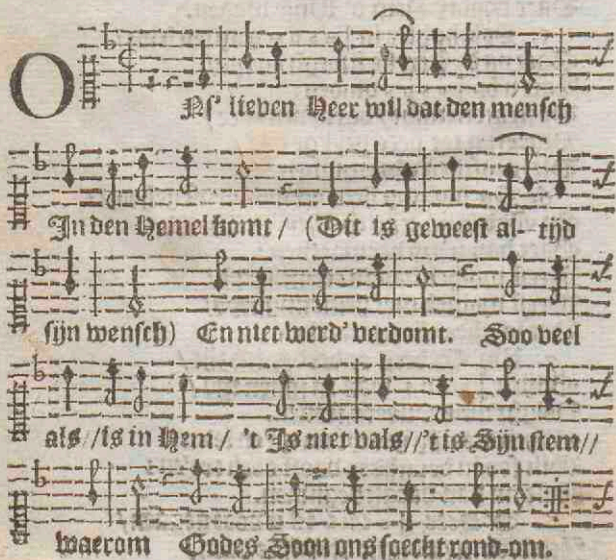 ONs' lieven Heer wil dat den mensch
In den Hemel komt / (Dit is geweest al- tijd
sijn wensch) En niet werd' verdomt. Soo veel
als //is in Hem / 't Is niet vals//'t is Sijn stem//
waerom Godes Soon ons soeckt rond-om.